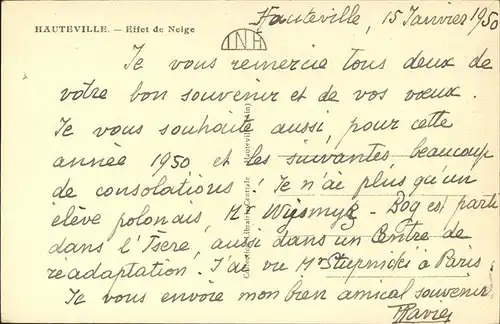 HAUTEVILLE. — Effet de Neige
Hauteville, 15 Janvier 1950
Je vous remercie tous deux de
votre bon souvenir et de vos vœux.
Je vous souhaite aussi, pour cette
année 1950 et les suivantes, beaucoup
de consolations! Je n'ai plus qu'un
élève polonais, Mr Wysmyk - Bog est parti
dans l'Isère, aussi dans un Centre de
réadaptation. J'ai vu Mr Stupnicki à Paris
Je vous envoie mon bien amical souvenir
Collection Librairie Centrale Hauteville (Ain)